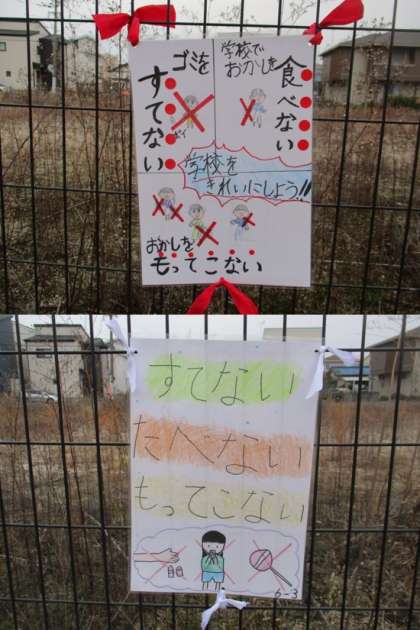 ゴミを
すてない
学校で
おかしを
食べない
学校を
きれいにしよう!!
おかしを
もってこない
すてない
たべない
もってこない
6-3